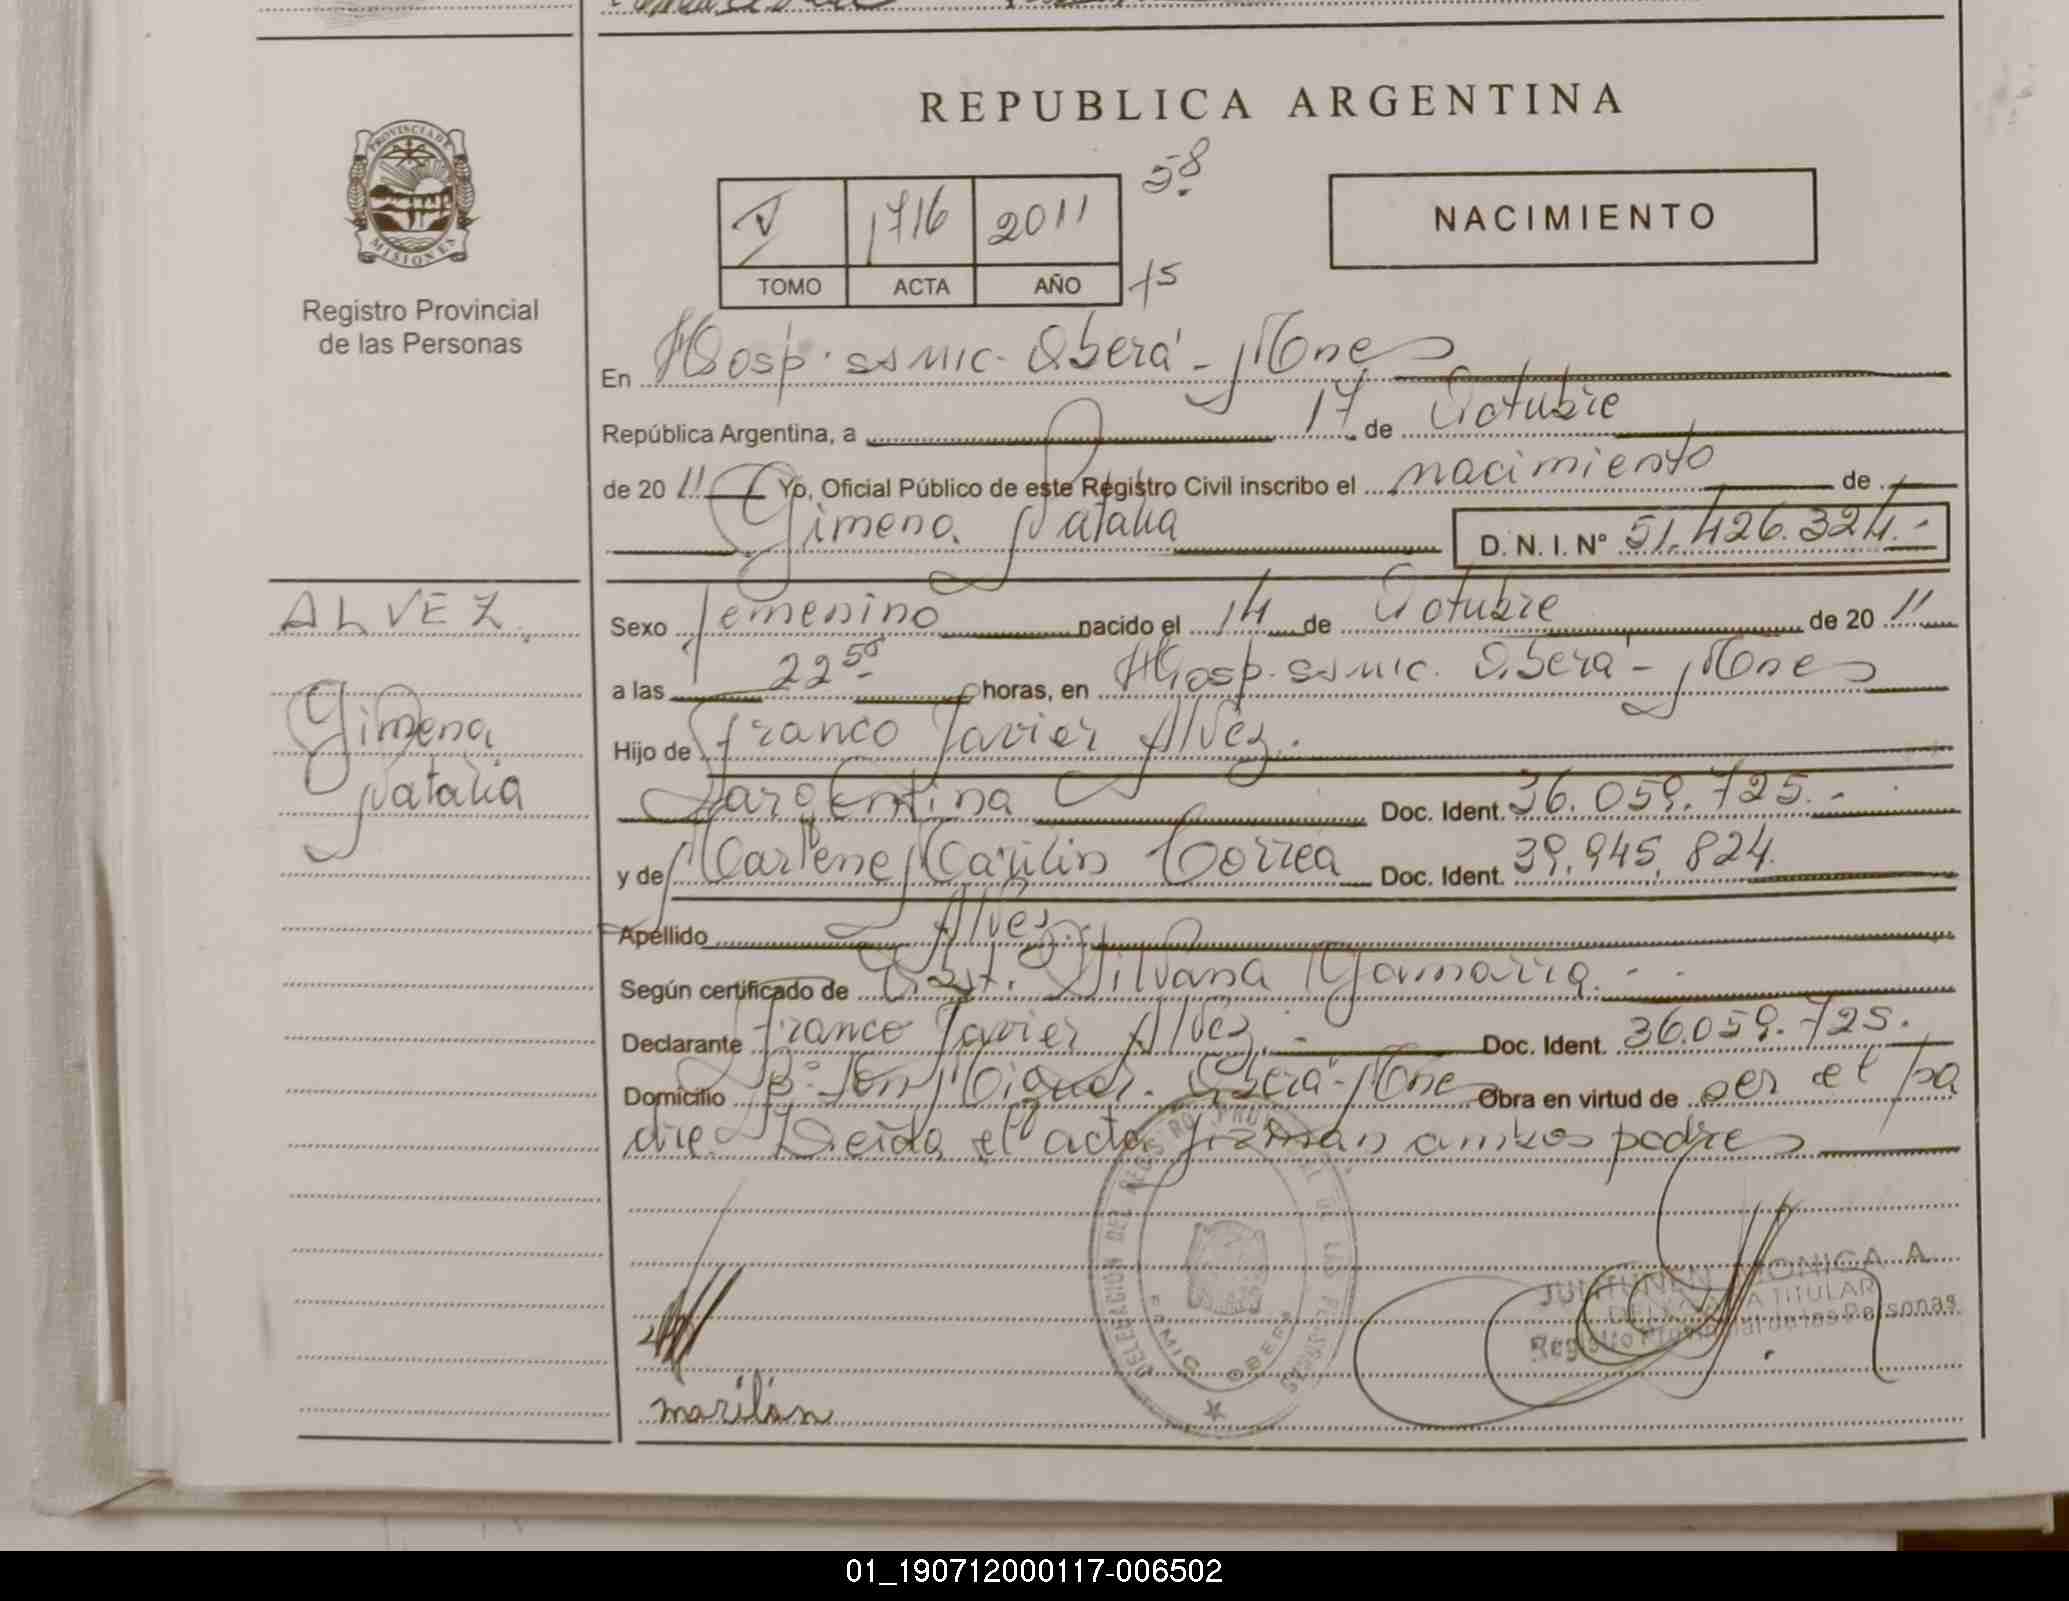 REPUBLICA ARGENTINA
PROVINCIA DE
MISIONES
Registro Provincial
de las Personas
V 1716 2011 58
TOMO ACTA AÑO 15
NACIMIENTO
En Hosp. ssmic. Oberá - Mnes
República Argentina, a 17 de Octubre
de 2011 Yo, Oficial Público de este Registro Civil inscribo el nacimiento de
Gimena Natalia D. N. I. Nº 51.426.324.-
ALVEZ
Gimena
Natalia
Sexo femenino nacido el 14 de Octubre de 2011
a las 22 50 horas, en Hosp. ssmic. Oberá - Mnes
Hijo de Franco Javier Alvez.
argentina Doc. Ident. 36.059.725.-
y de Marlene Marilin Correa Doc. Ident. 39.945.824
Apellido Alvez
Según certificado de Obst. Silvana Gamarra.-
Declarante Franco Javier Alvez.- Doc. Ident. 36.059.725.
Domicilio Bº San Miguel. Oberá - Mnes Obra en virtud de ser el pa
dre. Leida el acta firman ambos padres
DELEGACION DEL REGISTRO PROVINCIAL DE LAS PERSONAS
SAMIC OBERA
MONICA A.
TITULAR
Registro Provincial de las Personas
marilin
01_190712000117-006502